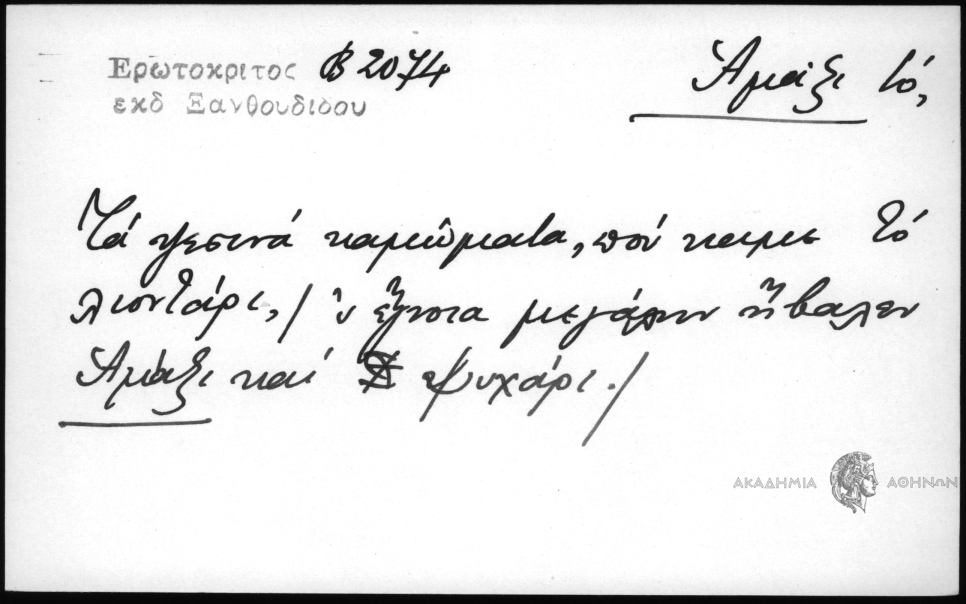 Ερωτοκριτος Β 2074
εκδ Ξανθουδιδου
Ἀμάξι τό,
Τά ψεσινά καμώματα, πού καμε τό
λιοντάρι, / ἔγνοια μεγάλην ἤβαλεν
Ἀμάξι καί ψυχάρι. /
ΑΚΑΔΗΜΙΑ ΑΘΗΝΩΝ